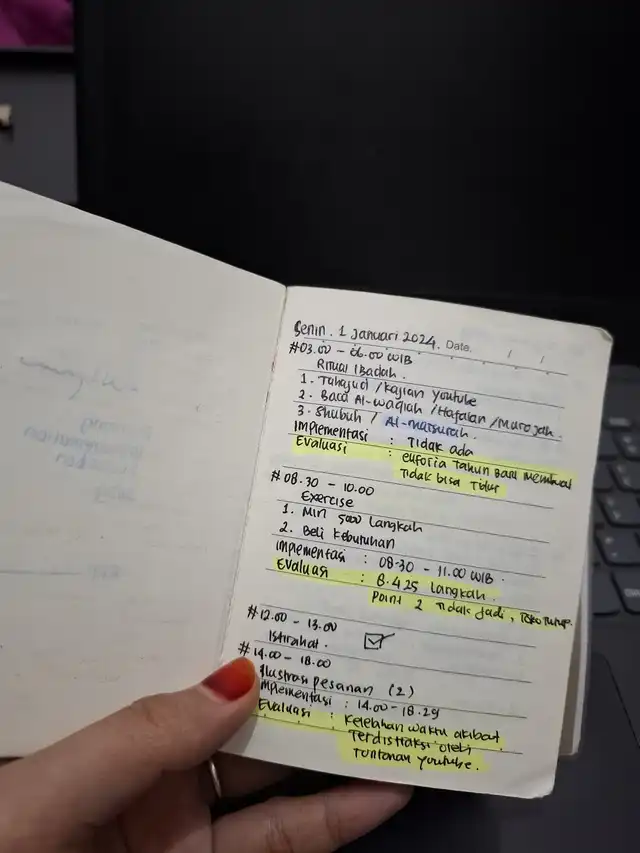 Senin. 1 Januari 2024. Date. / /
#03.00 - 06.00 WIB
Ritual Ibadah.
1. Tahajud / Kajian Youtube
2. Baca Al-waqiah / Hafalan / Murojah.
3. Shubuh / Al-matsurah.
Implementasi : Tidak ada
Evaluasi : euforia tahun baru membuat
Tidak bisa Tidur
#08.30 - 10.00
Exercise
1. Min 5000 Langkah
2. Beli Kebutuhan
Implementasi : 08.30 - 11.00 WIB.
Evaluasi : 8.425 Langkah.
Point 2 Tidak jadi, Toko Tutup.
#12.00 - 13.00
Istirahat.
#14.00 - 18.00
Ilustrasi pesanan (2)
Implementasi : 14.00 - 18.29
Evaluasi : Kelebihan waktu akibat
Terdistraksi oleh
Tontonan Youtube.